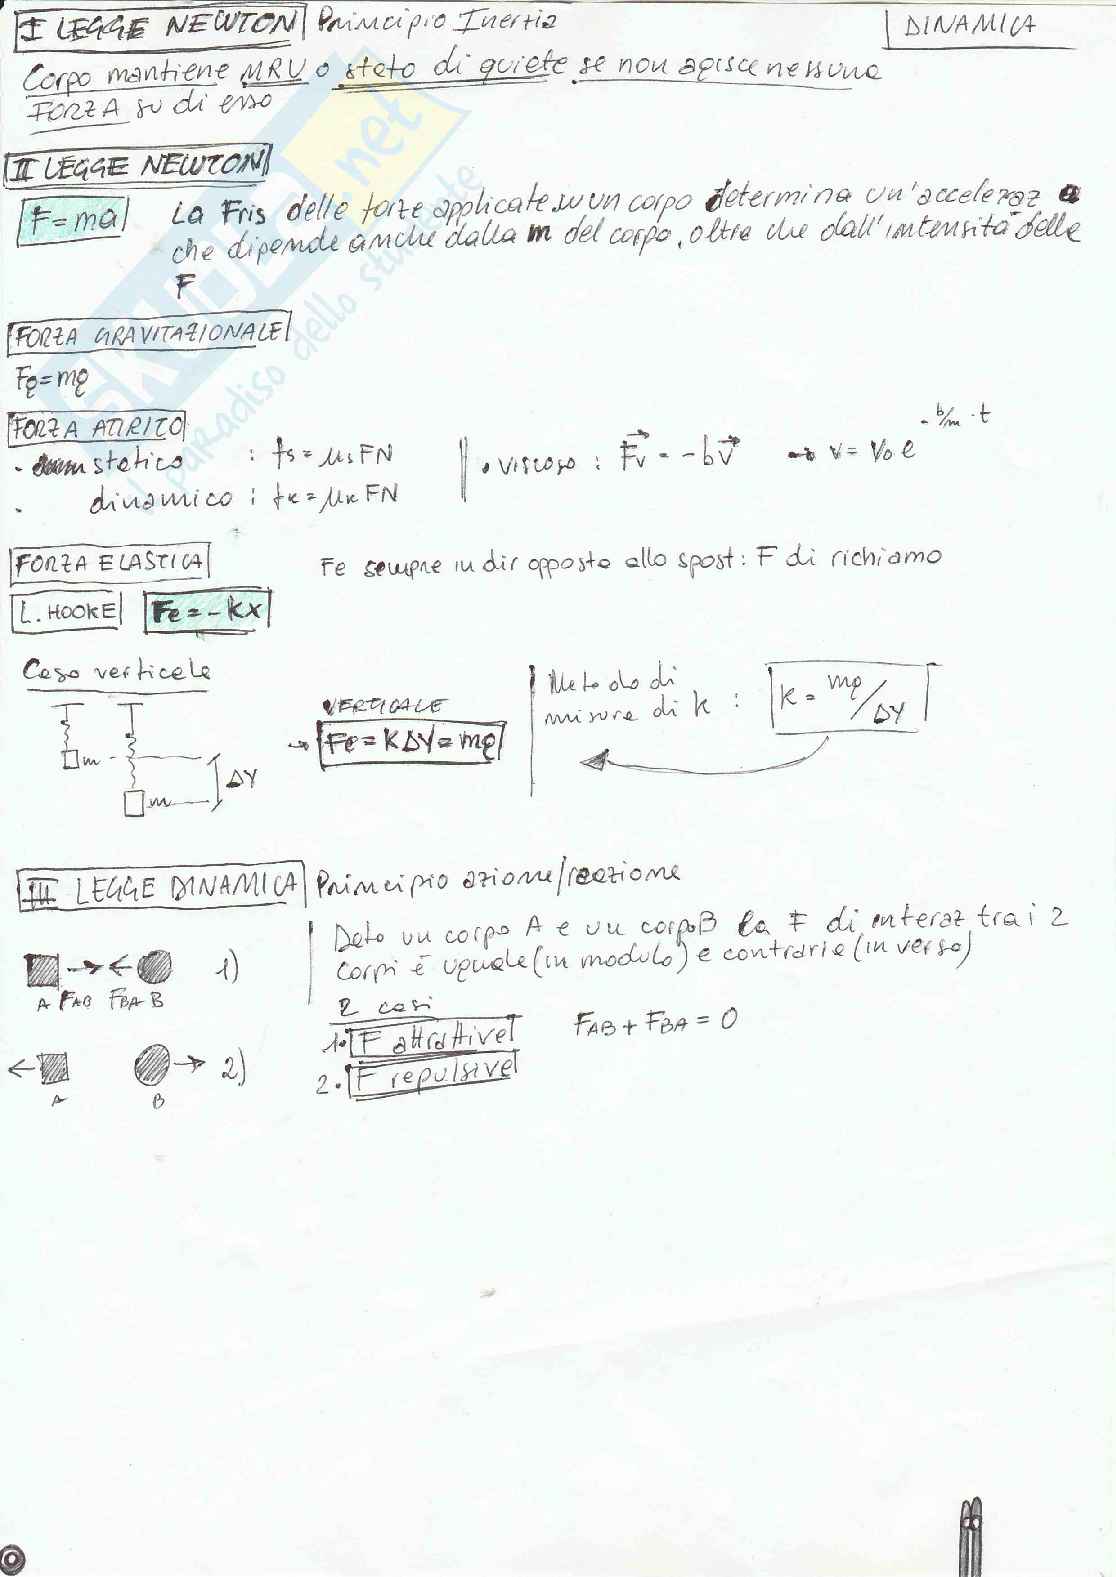 I LEGGE NEWTON Principio Inertia
DINAMICA
Corpo mantiene MRU o stato di quiete se non agisce nessuna
FORZA su di esso
II LEGGE NEWTON
F=ma
La Fris delle forze applicate su un corpo determina un'acceleraz a
che dipende anche dalla m del corpo, oltre che dall'intensità delle
F
FORZA GRAVITAZIONALE
Fg=mg
FORZA ATTRITO
. statico : fs=μsFN
. dinamico : fk=μkFN
• viscoso : Fv = -bv → v= v0 e -b/m·t
FORZA ELASTICA
Fe sempre in dir opposta allo spost: F di richiamo
L. HOOKE Fe=-kx
Caso verticale
m
m
ΔY
VERTICALE
→ Fe=KΔY=mg
Metodo di
misura di k : k= mg/ΔY
III LEGGE DINAMICA Principio azione/reazione
Dato un corpo A e un corpo B la F di interaz tra i 2
corpi è uguale (in modulo) e contraria (in verso)
A FAB FBA B 1)
2 casi
1. F attrattive
FAB + FBA = 0
2. F repulsive
A B 2)
SKUOLA.net
il paradiso dello studente